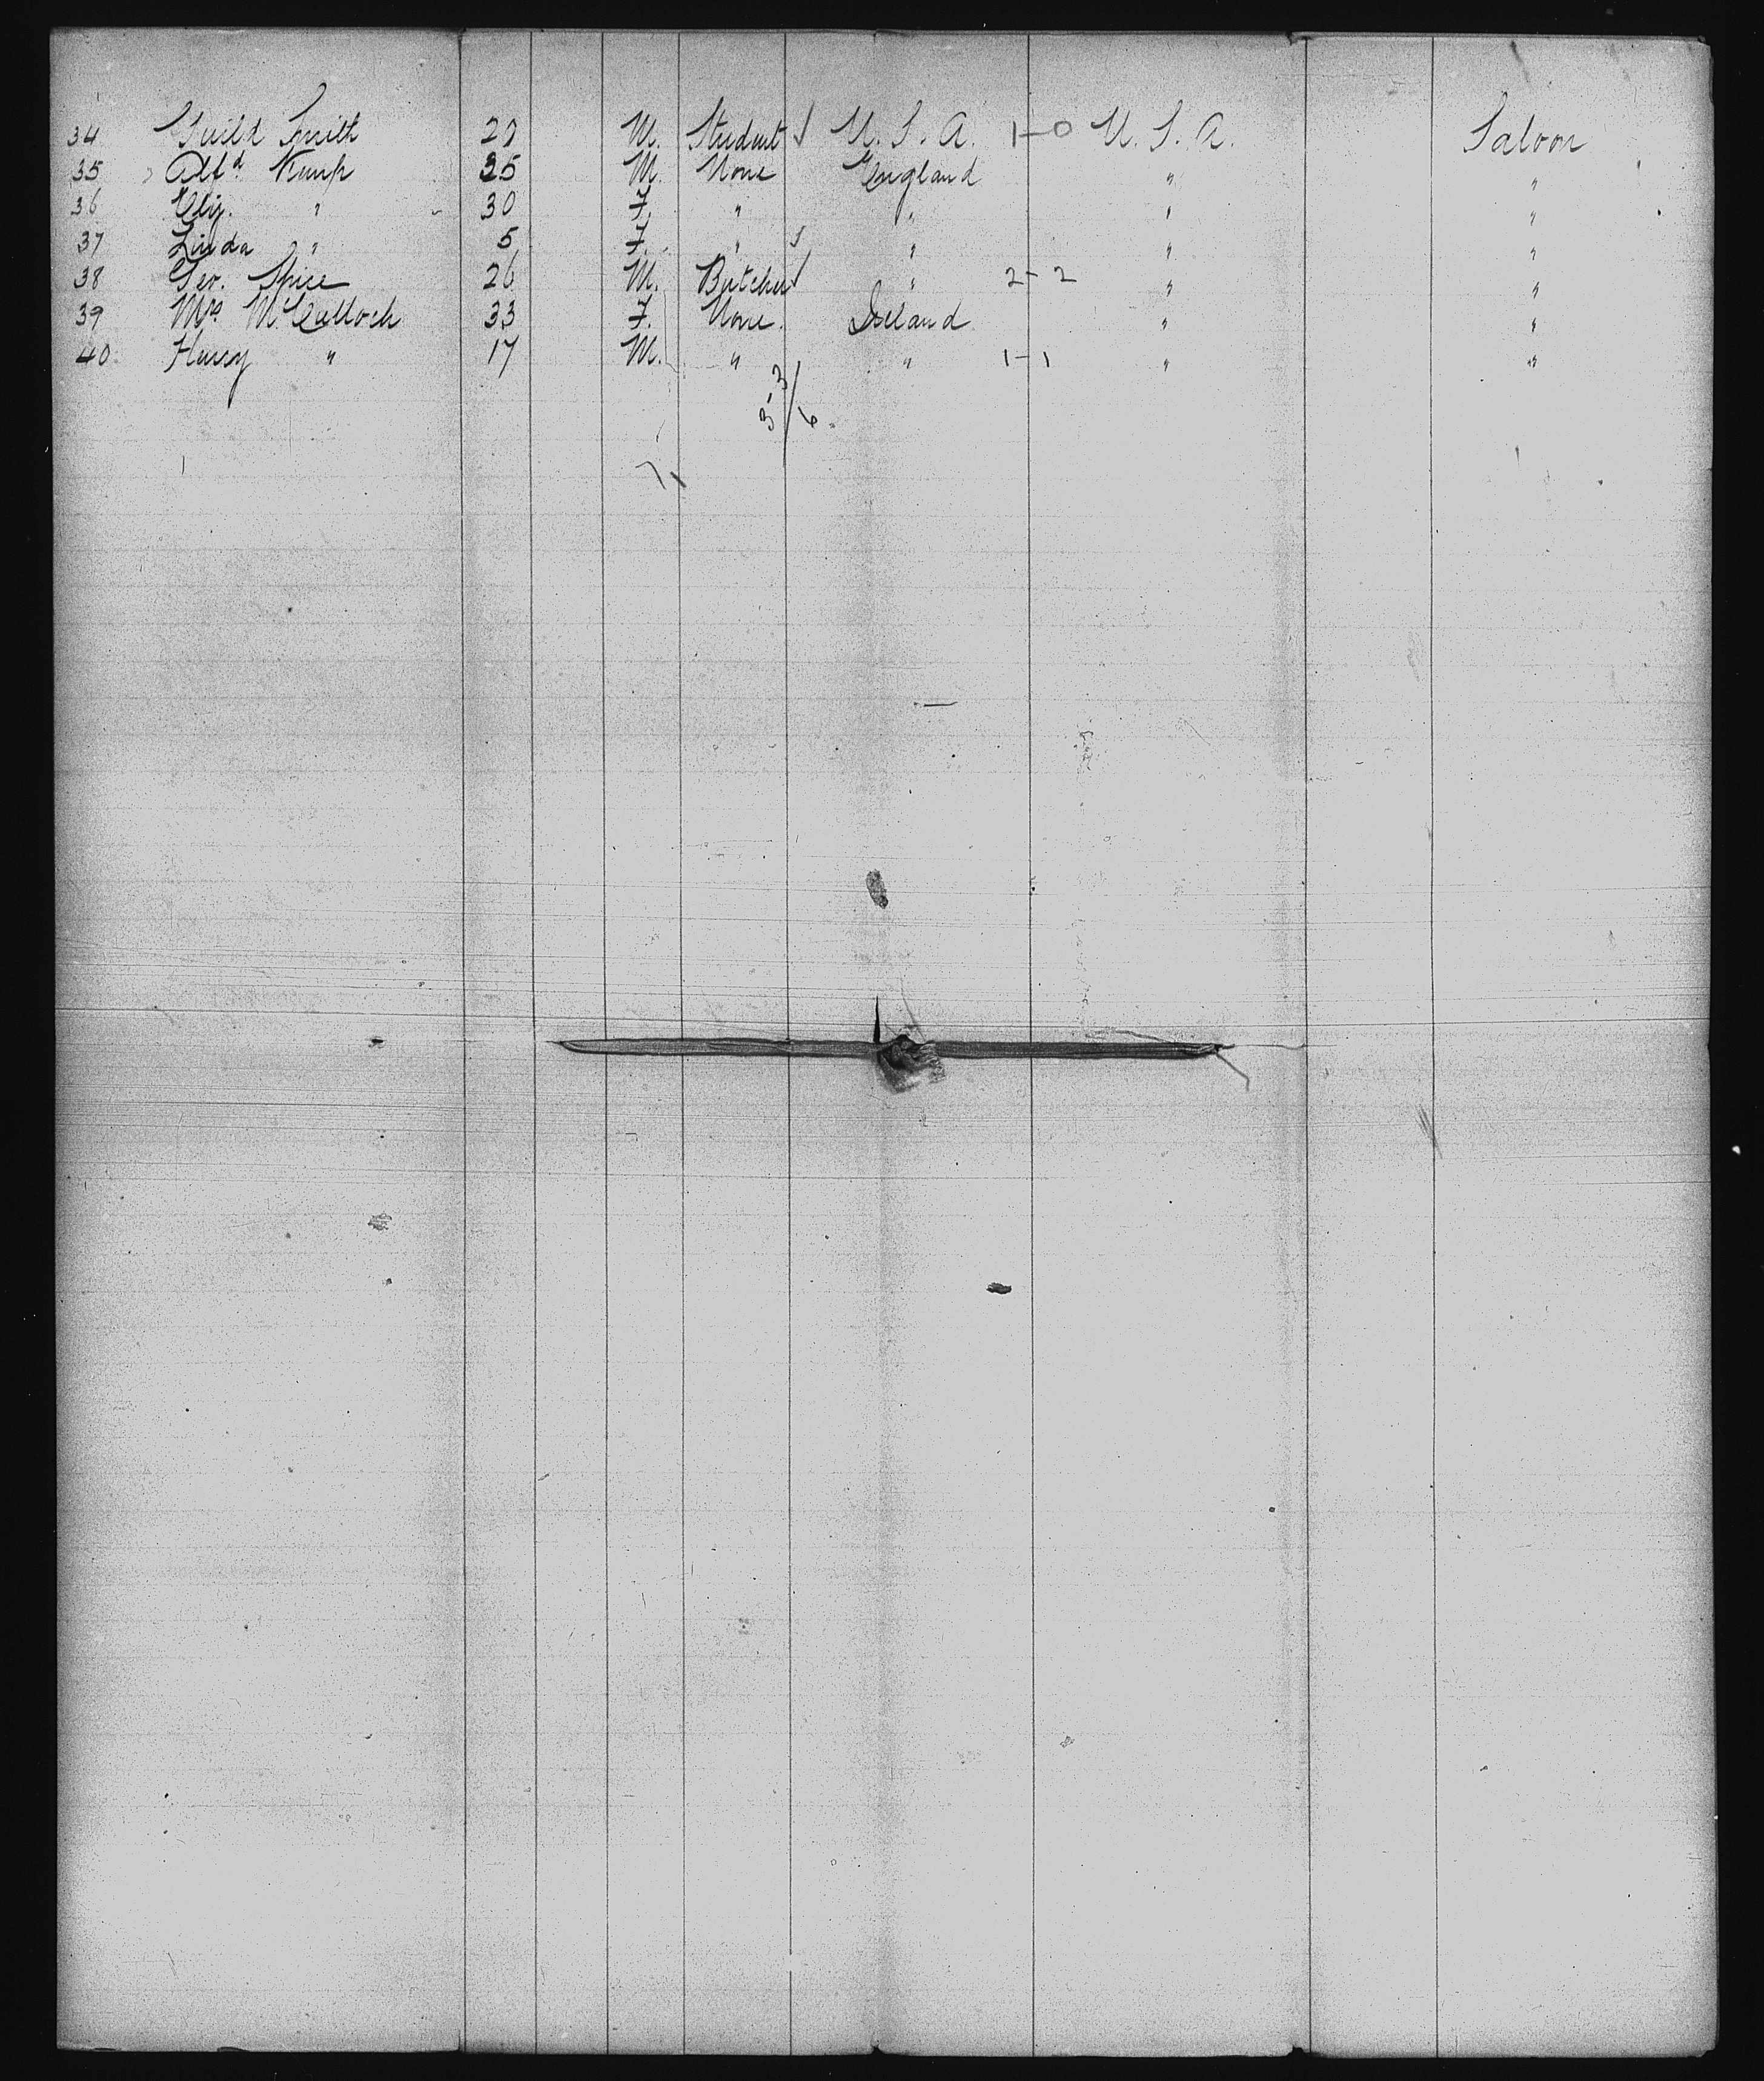 34 Guild Smith 29 M. Student U.S.A. 1-0 U.S.A. Saloon
35 Alfd. Kemp 35 M. None England " "
36 Eliz. " 30 F. " " " "
37 Linda " 5 F. " " " "
38 Geo. Spice 26 M. Butcher " 2-2 " "
39 Mrs. McCulloch 33 F. None. Ireland " "
40 Henry " 17 M. " " 1-1 " "
3-3/6.